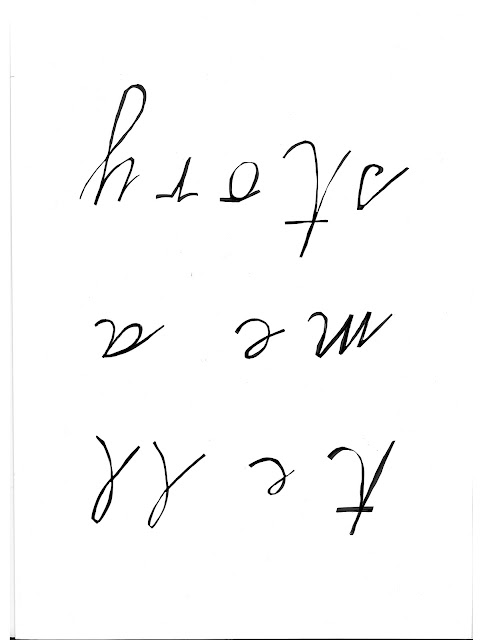 tell
me a
story